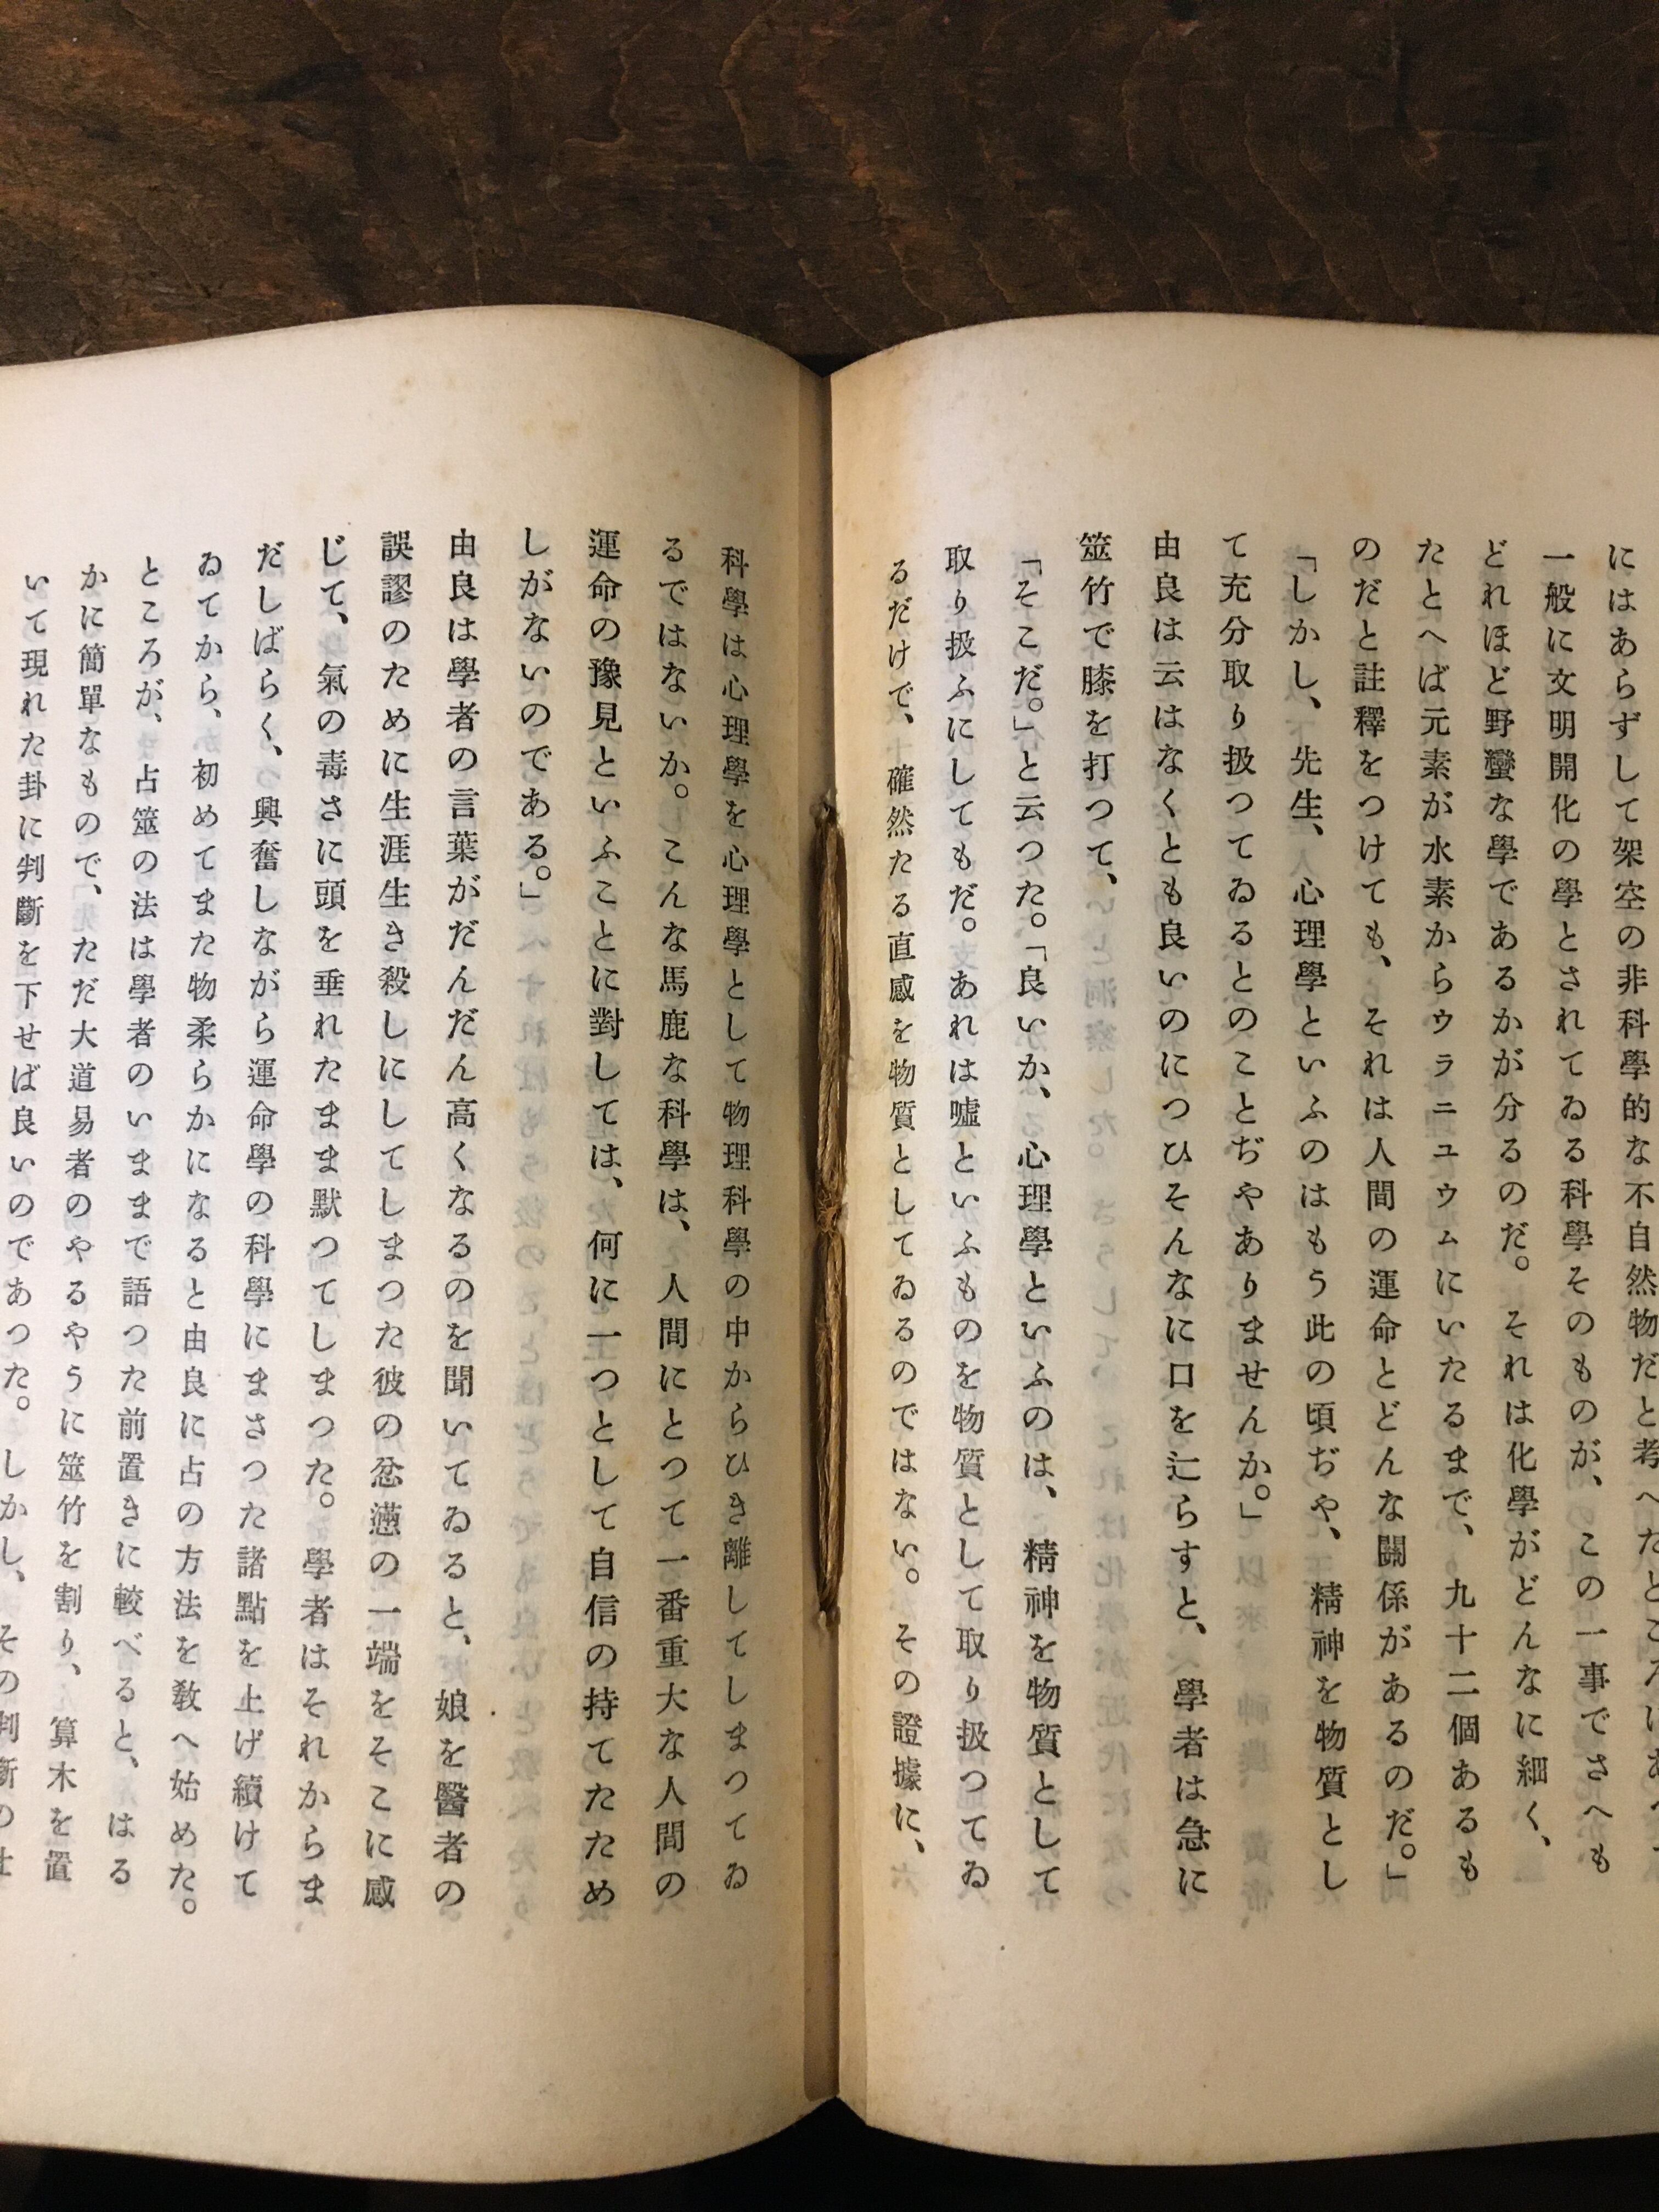 にはあらずして架空の非科學的な不自然物だと考へたところにあ
一般に文明開化の學とされてゐる科學そのものが、この一事でさへも
どれほど野蠻な學であるかが分るのだ。それは化學がどんなに細く、
たとへば元素が水素からウラニユウムにいたるまで、九十二個あるも
のだと註釋をつけても、それは人間の運命とどんな關係があるのだ。」
「しかし、先生、心理學といふのはもう此の頃ぢや、精神を物質とし
て充分取り扱つてゐるとのことぢやありませんか。」
由良は云はなくとも良いのにつひそんなに口を辷らすと、學者は急に
筮竹で膝を打つて、
「そこだ。」と云つた。「良いか、心理學といふのは、精神を物質として
取り扱ふにしてもだ。あれは嘘といふものを物質として取り扱つてゐ
るだけで、確然たる直感を物質としてゐるのではない。その證據に、
科學は心理學を心理學として物理科學の中からひき離してしまつてゐ
るではないか。こんな馬鹿な科學は、人間にとつて一番重大な人間の
運命の豫見といふことに對しては、何に一つとして自信の持てたため
しがないのである。」
由良は學者の言葉がだんだん高くなるのを聞いてゐると、娘を醫者の
誤謬のために生涯生き殺しにしてしまつた彼の忿懣の一端をそこに感
じて、氣の毒さに頭を垂れたまま默つてしまつた。學者はそれからま
だしばらく、興奮しながら運命學の科學にまさつた諸點を上げ續けて
ゐてから、初めてまた物柔らかになると由良に占の方法を敎へ始めた。
ところが、占筮の法は學者のいままで語つた前置きに較べると、はる
かに簡單なもので、ただ大道易者のやるやうに筮竹を割り、算木を置
いて現れた卦に判斷を下せば良いのであつた。しかし、その判斷の仕